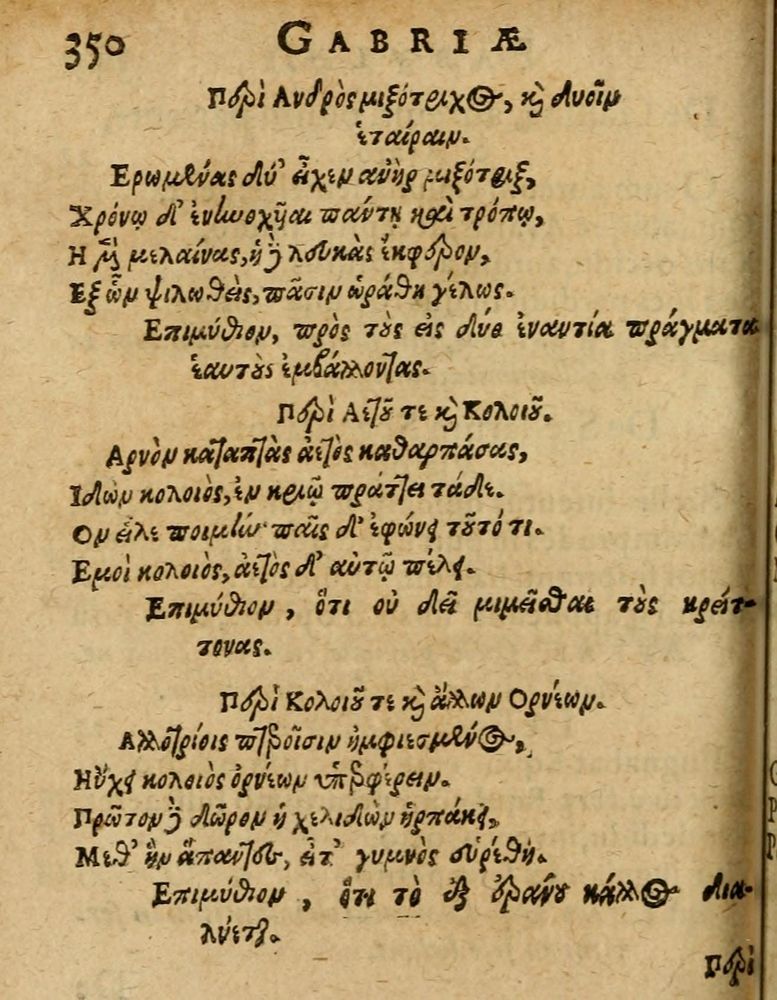 350 GABRIÆ
Περὶ Ανδρὸς μιξότριχος, καὶ δυοῖν
ἑταίραιν.
Ερωμένας δύ' εἶχεν ανὴρ μιξότριξ,
Χρόνῳ δ' ἐν παντὶ καὶ τρόπῳ,
Η μὲν μελαίνας, ἡ δὲ λευκὰς ἔκφερον,
Εξ ὧν ψιλωθεὶς, πᾶσιν ὡράθη γέλως.
Επιμύθιον, πρὸς τοὺς εἰς δύο ἐναντία πράγματα
ἑαυτοὺς ἐμβάλλοντας.
Περὶ Αετοῦ τε καὶ Κολοιοῦ.
Αρνὸν καταπτὰς ἀετὸς καθαρπάσας,
Ιδὼν κολοιὸς, ἐν κριῷ πράττει τάδε.
Ον εἷλε ποιμήν· παῖς δ' ἐφώνει τοῦτό τι.
Εμοὶ κολοιὸς, ἀετὸς δ' αὑτῷ πέλει.
Επιμύθιον, ὅτι οὐ δεῖ μιμεῖσθαι τοὺς κρείτ-
τονας.
Περὶ Κολοιοῦ τε καὶ ἄλλων Ορνέων.
Αλλοτρίοις πτεροῖσιν ἠμφιεσμένος,
Ηὔχει κολοιὸς ὀρνέων ὑπερφέρειν.
Πρῶτον δὲ δῶρον ἡ χελιδὼν ἡρπάκει,
Μεθ' ἣν ἅπαντες, εἶτ' γυμνὸς εὑρέθη.
Επιμύθιον, ὅτι τὸ ἐξ ἐράνου κάλλος δια-
λύεται.
Περὶ